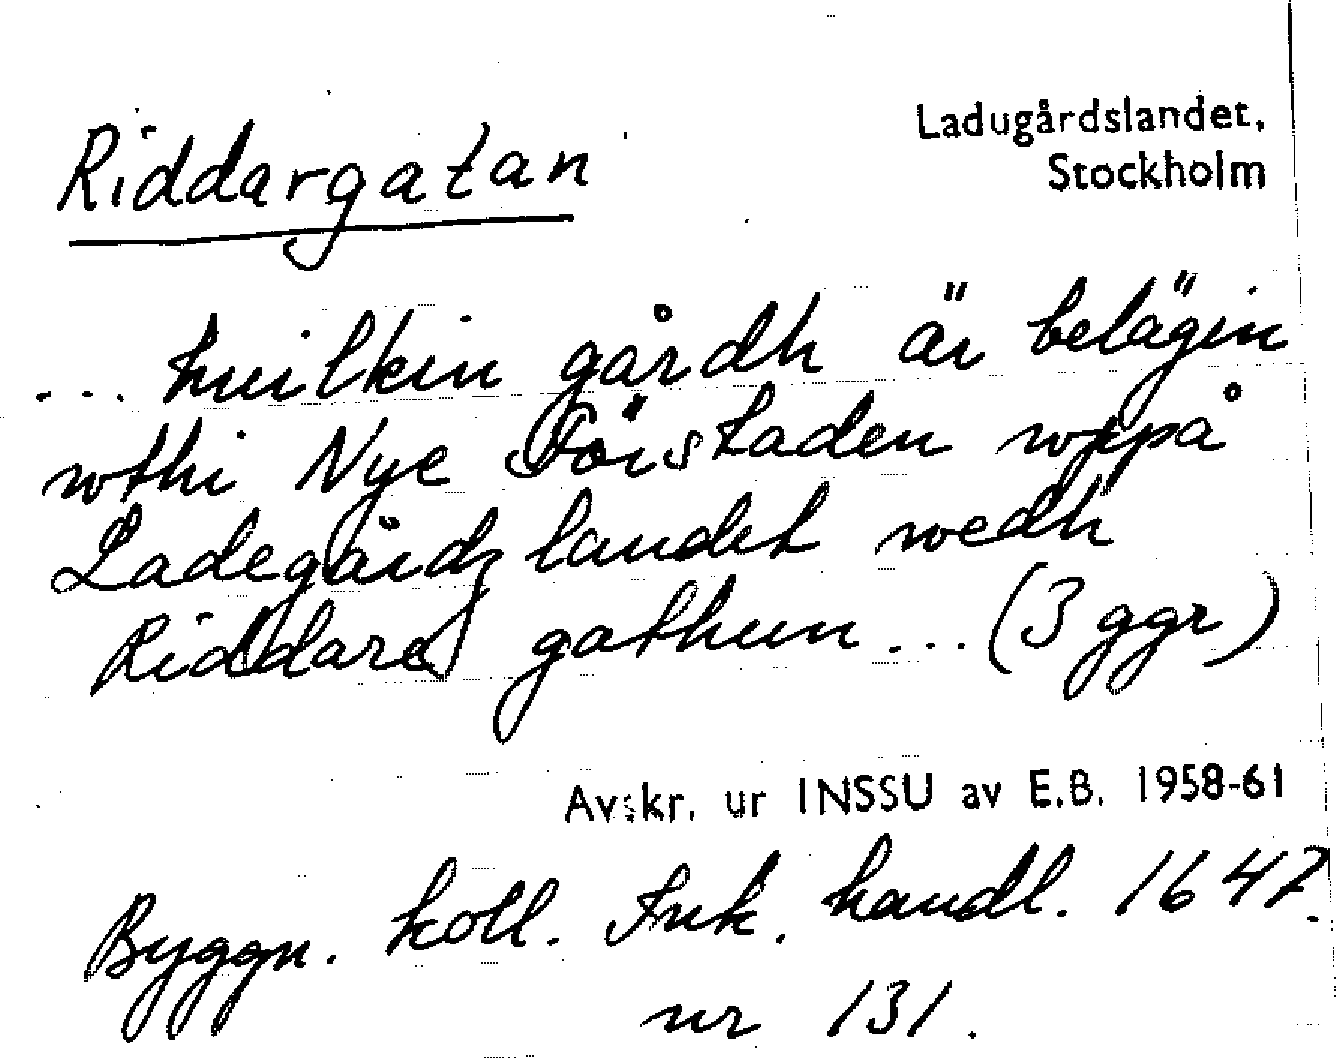 Riddargatan
Ladugårdslandet,
Stockholm
... huilkin gårdh är belägin
wthi Nye Förstaden wppå
Ladegårdz landet wedh
Riddare gathun ... (3 ggr)
Avskr. ur INSSU av E.B. 1958-61
Byggn. koll. Ink. handl. 1647.
nr 131.